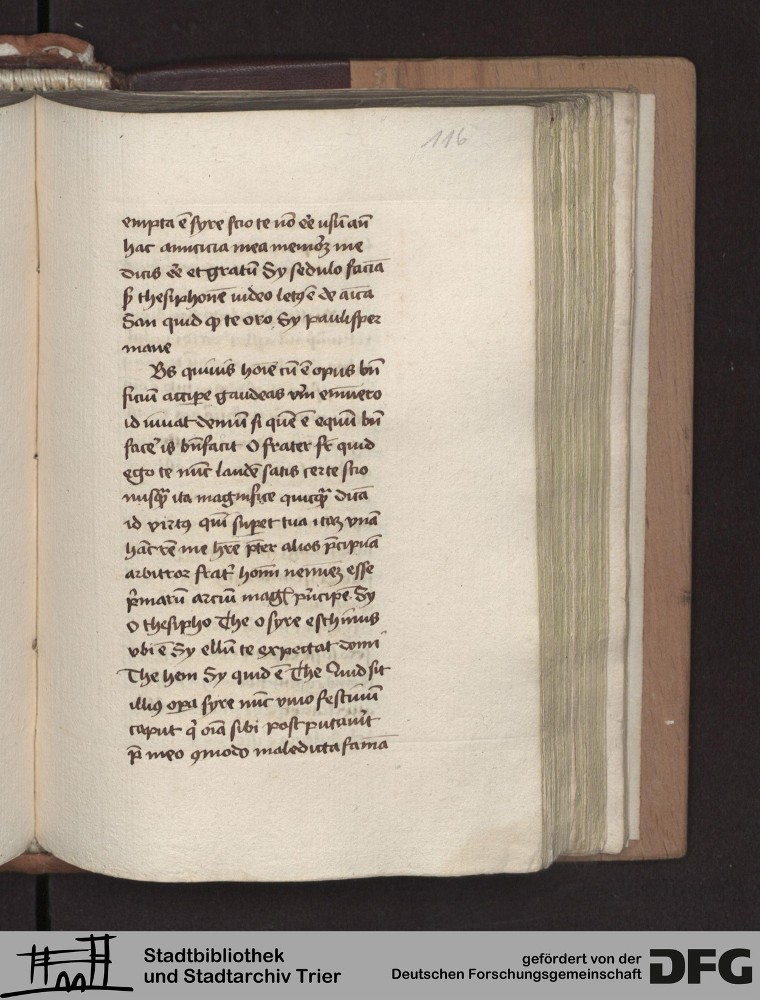 116
empta ē syre scio te nō eē usū an̄
hac amicicia mea memorꝫ me
dicis eē et gratū Sy sedulo faciā
sꝫ thesiphonē video letꝰ ē de aīca
San quid ꝙ te oro Sy paulisper
mane
Bs quiuis hoīe cū ē opus bn̄
ficiū accipe gaudeas vm̄ emuero
id iuuat demū si quē ē equū bn̄
facē is bn̄facit O frater fr̄ quid
ego te nūc laudē satis certe scio
nusqꝫ̄ ita magnifice quicqꝫ̄ dicā
id virtꝰ quī supet tua itaqꝫ vnā
hāc rē me hr̄e p̄ter alios p̄cipuā
arbitror frat̄ homī neminē esse
p̄marū arciū magꝭ prīcipē Sy
O thesipho The o syre eschinus
vbi ē Sy ellū te expectat domi
The hem Sy quid ē The Quid sit
illiꝰ opa syre nūc viuo festiuū
caput q̄ oīa sibi post putauīt
p̄ meo ꝯmodo maledicta famā
Stadtbibliothek
und Stadtarchiv Trier
gefördert von der
Deutschen Forschungsgemeinschaft
DFG